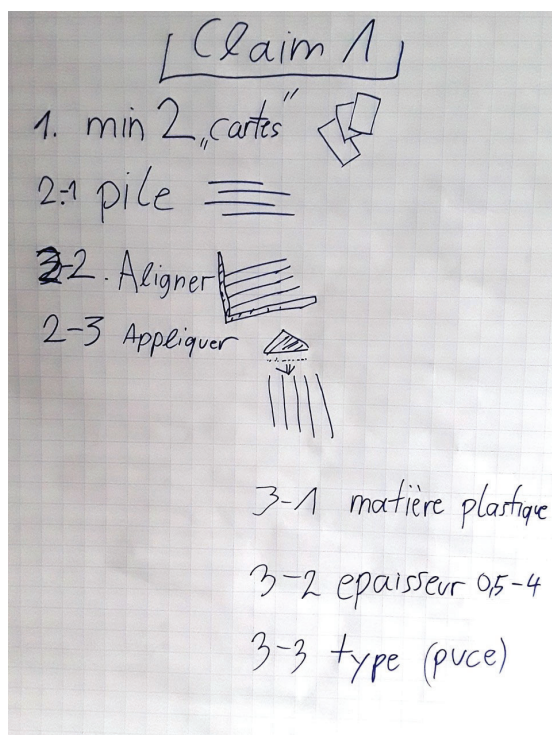 Claim 1
1. min 2 „cartes”
2-1 pile
2-2. Aligner
2-3 Appliquer
3-1 matière plastique
3-2 epaisseur 0,5-4
3-3 type (puce)